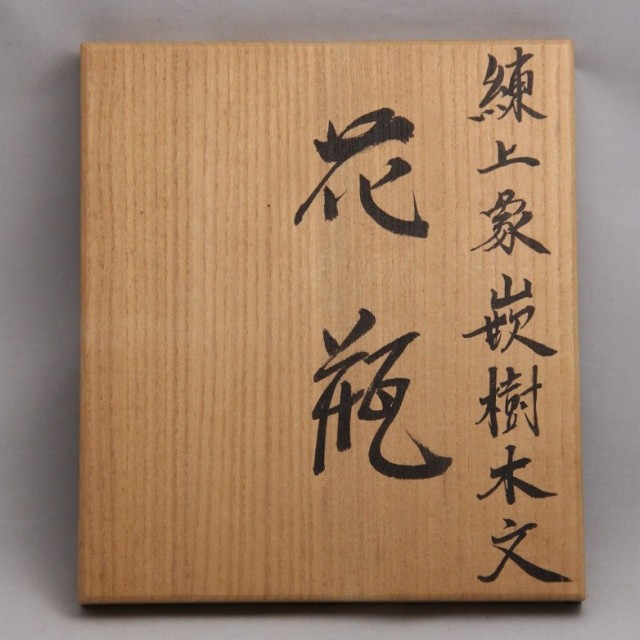 練上象嵌樹木文
花瓶